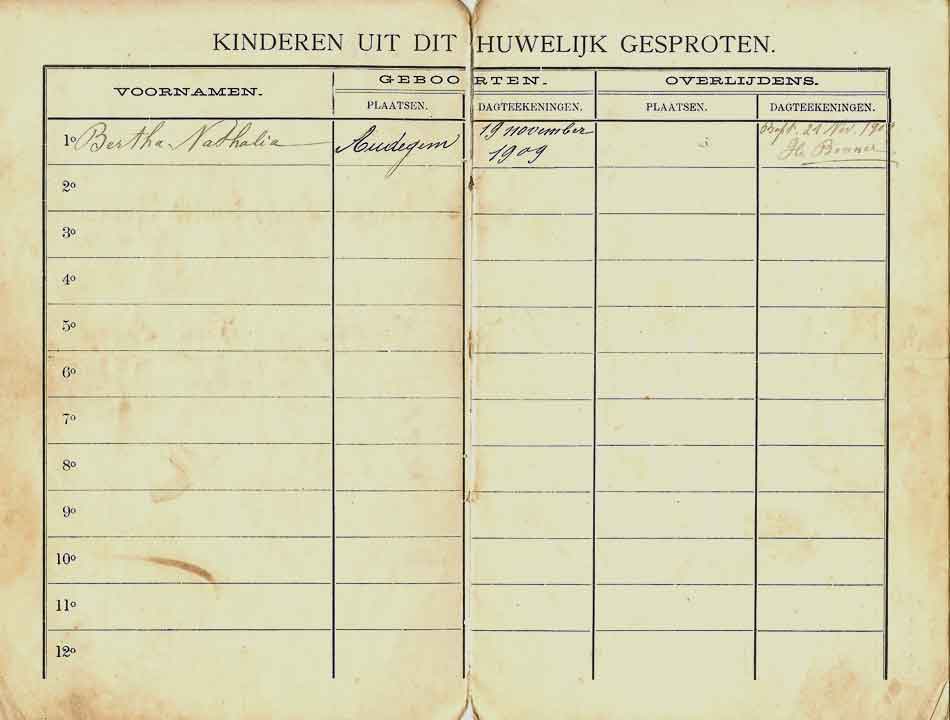 KINDEREN UIT DIT HUWELIJK GESPROTEN.
VOORNAMEN.
GEBOORTEN.
OVERLIJDENS.
PLAATSEN.
DAGTEEKENINGEN.
PLAATSEN.
DAGTEEKENINGEN.
1º Bertha Nathalia
Audegem
19 november
1909
Bapt. 21 Nov.
2º
3º
4º
5º
6º
7º
8º
9º
10º
11º
12º